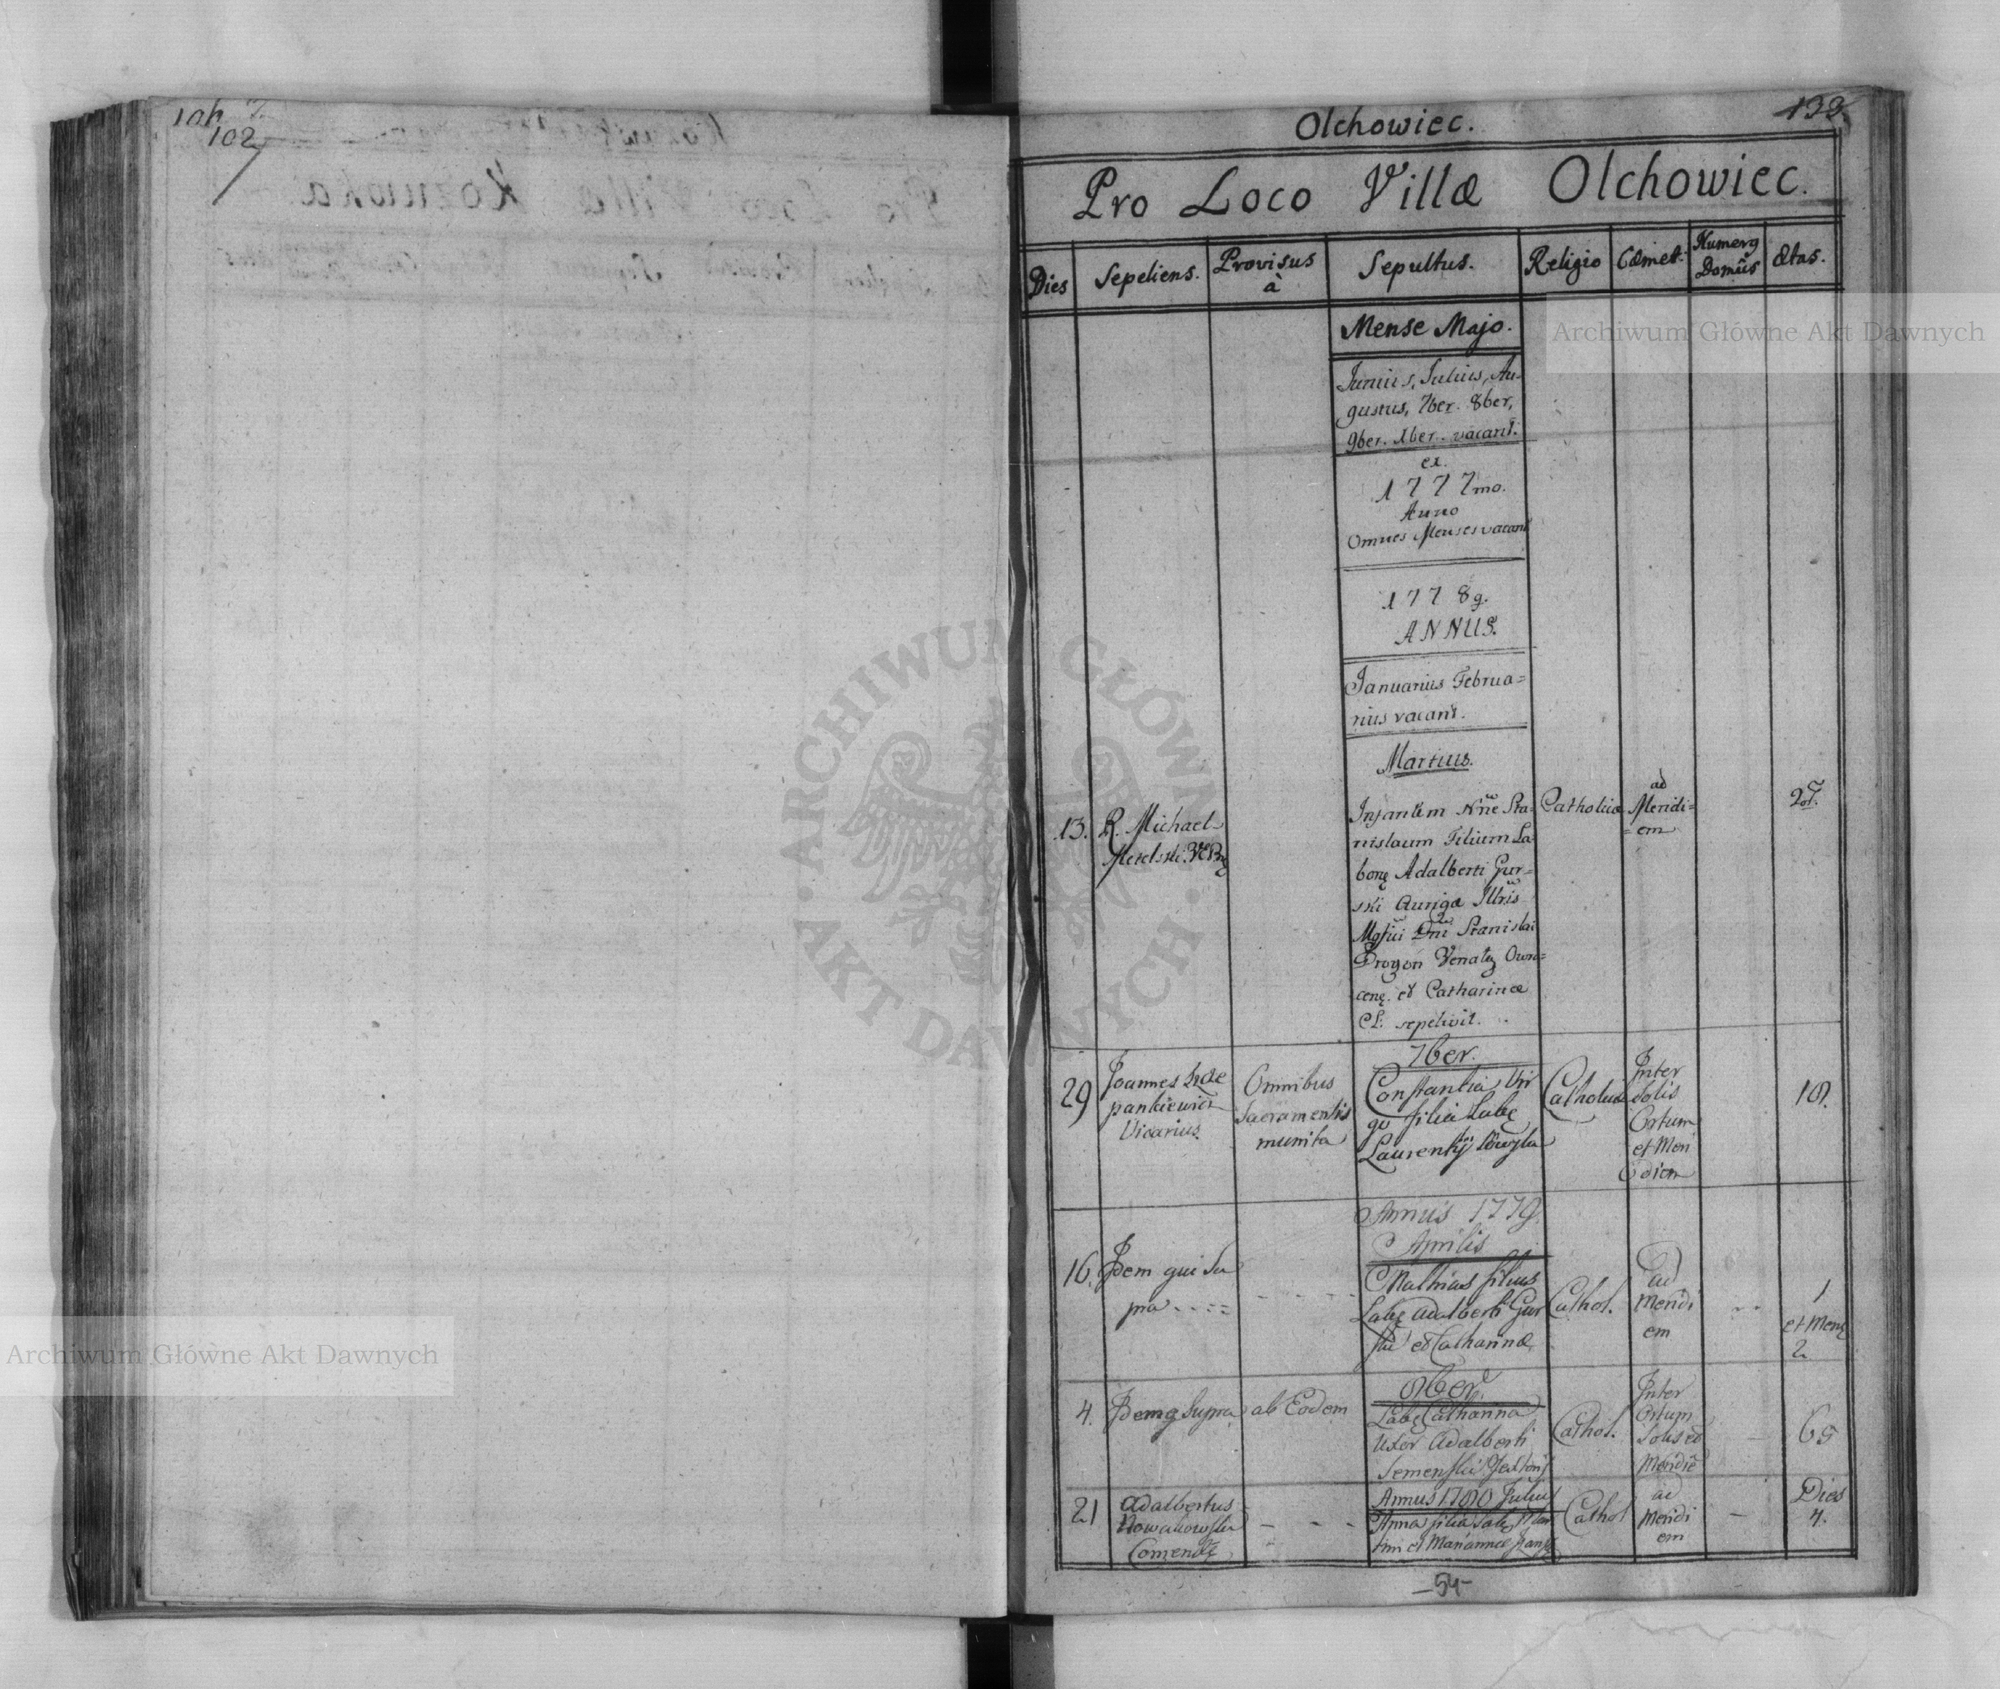 102
Olchowiec.
133.
Pro Loco Villæ Olchowiec.
Dies
Sepeliens.
Provisus
à
Sepultus.
Religio
Cœmet:
Numerq
Domûs
Ætas.
Mense Majo.
Junius, Julius, Au-
gustus, 7ber. 8ber,
9ber. Xber. vacant.
1777mo.
Anno
Omnes Menses vacant
1778q.
ANNUS.
Januarius Februa=
rius vacant.
Martius.
13.
R. Michael
Infantem Nñe Sta-
nislaum Filium La-
borę Adalberti Gur-
ski Aurigæ Illris
Mgfici Dñi Stanislai
et Catharinæ
CL: sepelivit.
Catholicæ
ad
Meridi=
=em
7ber.
29
Joannes Szcze
pankiewicz
Vicarius.
Omnibus
Sacramentis
munita
Constantia Vir
go filia Labę
Laurentij
Catholica
Inter
Solis
Ortum
et Meri
diem
18.
Annus 1779.
Aprilis
16.
Idem qui Su
pra - - - -
Mathias filius
Labę Adalberti Gur
ski et Catharinæ
Cathol.
ad
Meridi
em
1
et Mens
2
8ber.
4.
Idem q Supra
ab Eodem
Labę Catharina
Uxor Adalberti
Semenski
Cathol.
Inter
Ortum
Solis et
Meridiẽ
65
Annus 1780 Julius
21
Adalbertus
Nowakowski
Comend
Anna filia Labę Mar
tini et Mariannæ
Cathol
ad
Meridi
em
Dies
4.
-54-
Archiwum Główne Akt Dawnych
Archiwum Główne Akt Dawnych
ARCHIWUM GŁÓWNE
AKT DAWNYCH